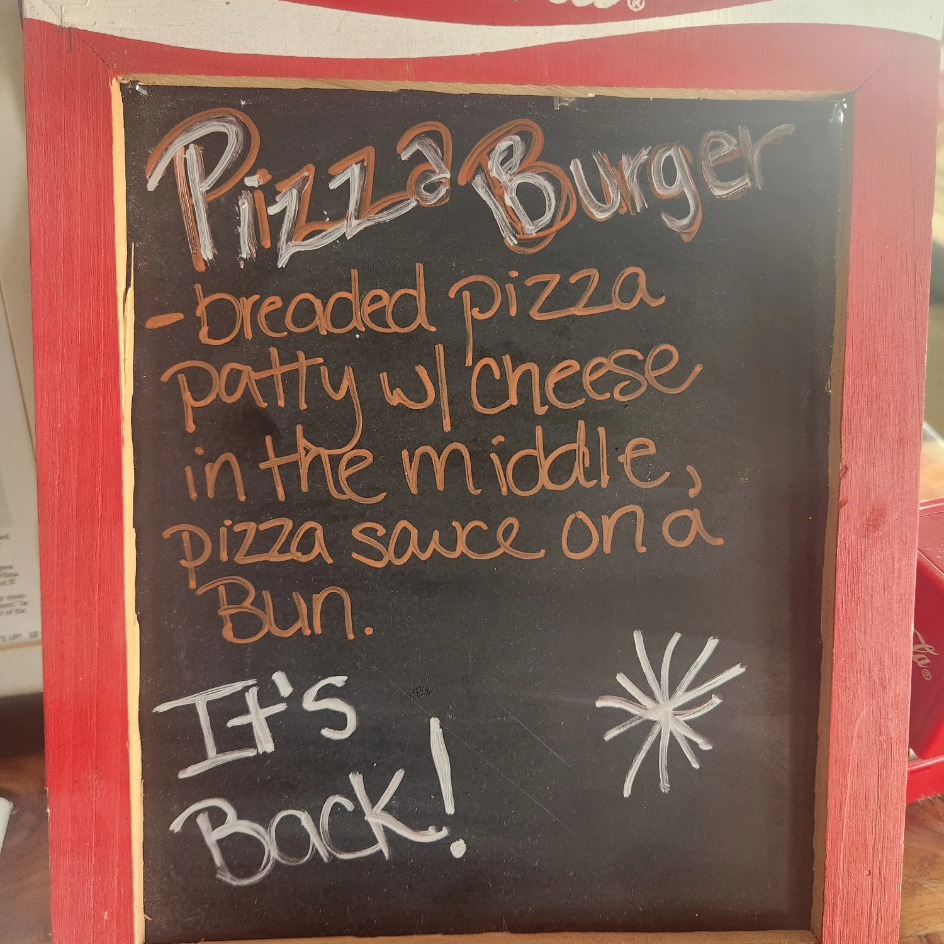 Pizza Burger
- breaded pizza
patty w/ cheese
in the middle,
pizza sauce on a
Bun.
It's
Back!